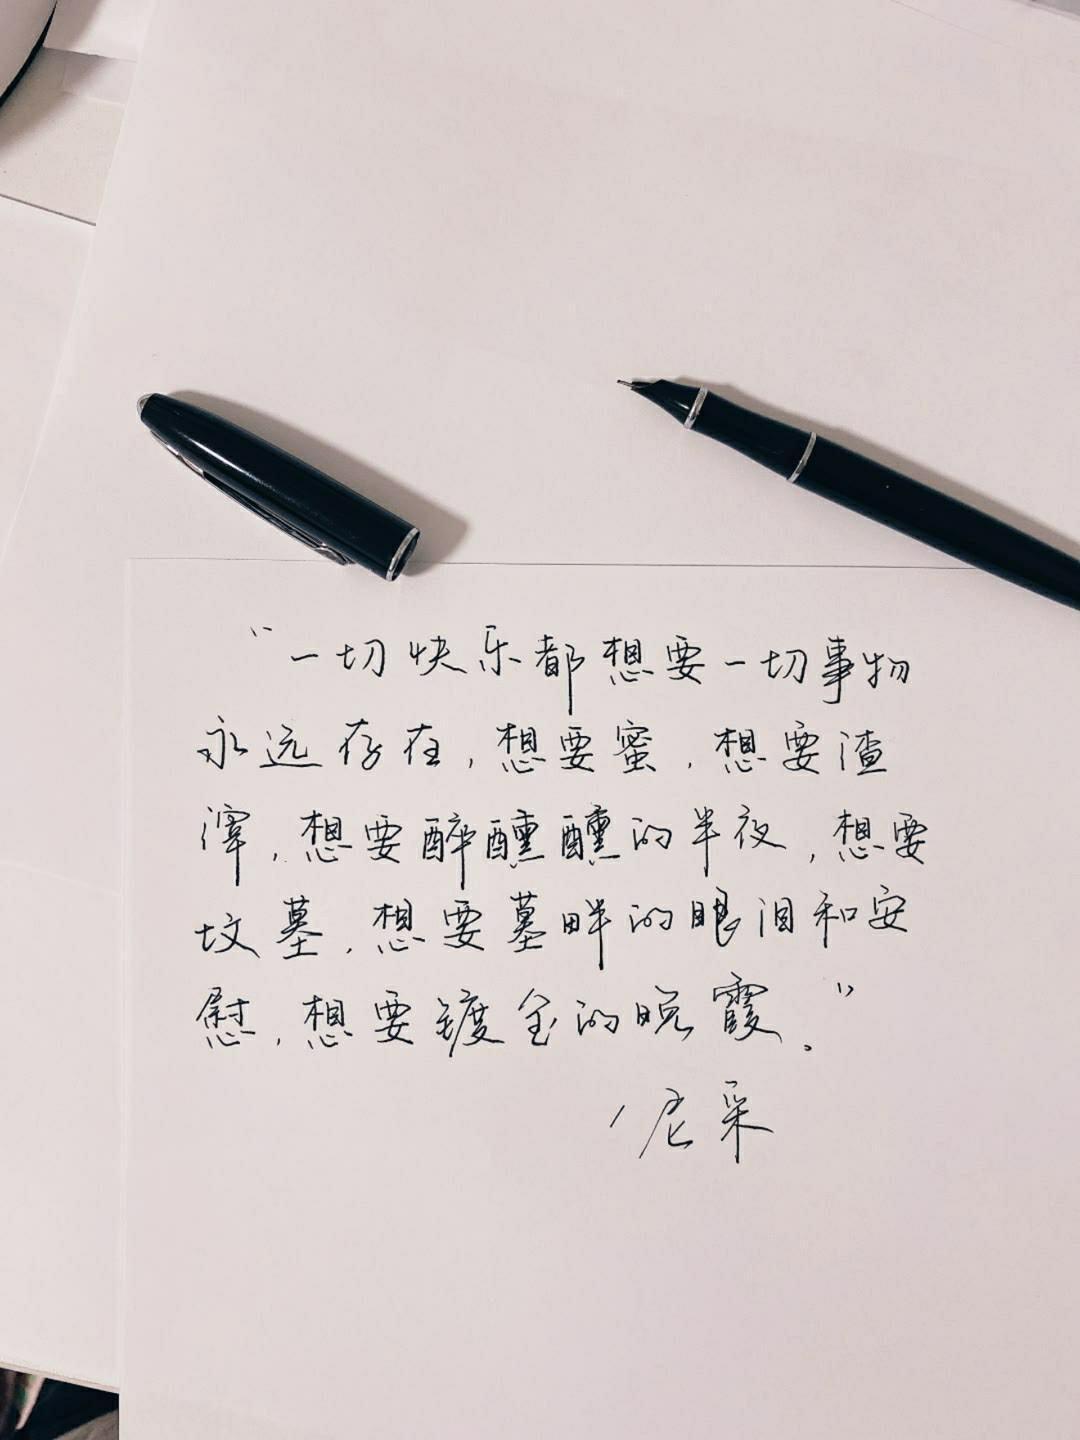 “一切快乐都想要一切事物
永远存在,想要蜜,想要渣
滓,想要醉醺醺的半夜,想要
坟墓,想要墓畔的眼泪和安
慰,想要镀金的晚霞。”
/尼采